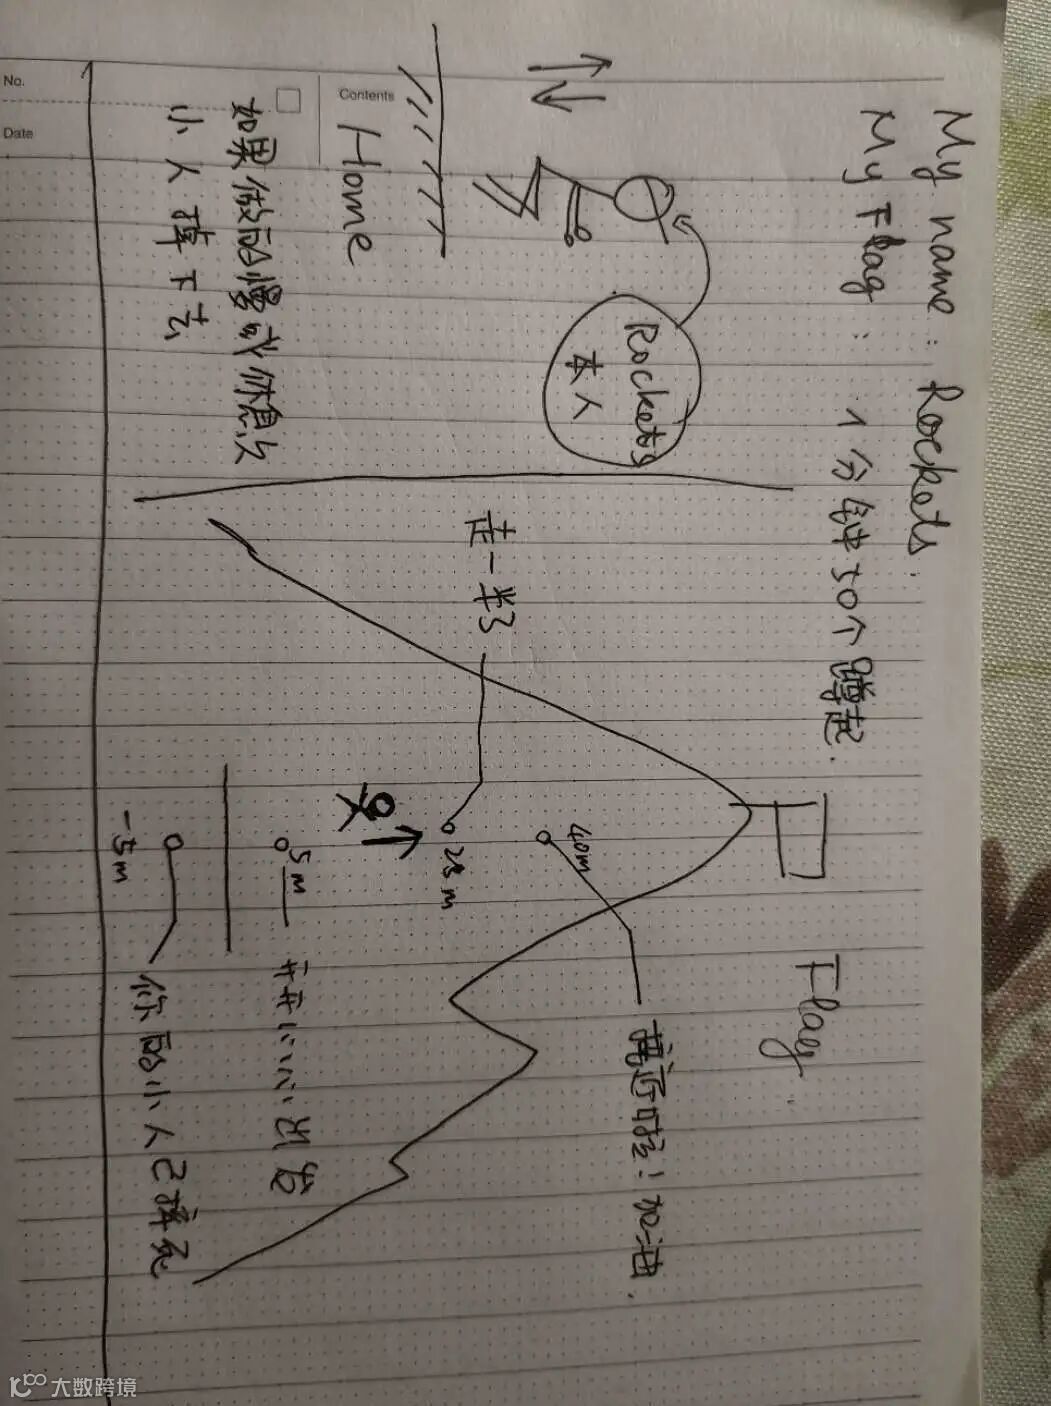 My name: Rockets.
My Flag: 1分钟50个蹲起.
Rockets
本人
Home
如果做的慢或休息久
小人掉下去
走一半了
Flag
40m
25m
5m
-5m
接近胜! 加油.
开开心心出发
你的小人已摔死
No.
Date
Contents
大数跨境